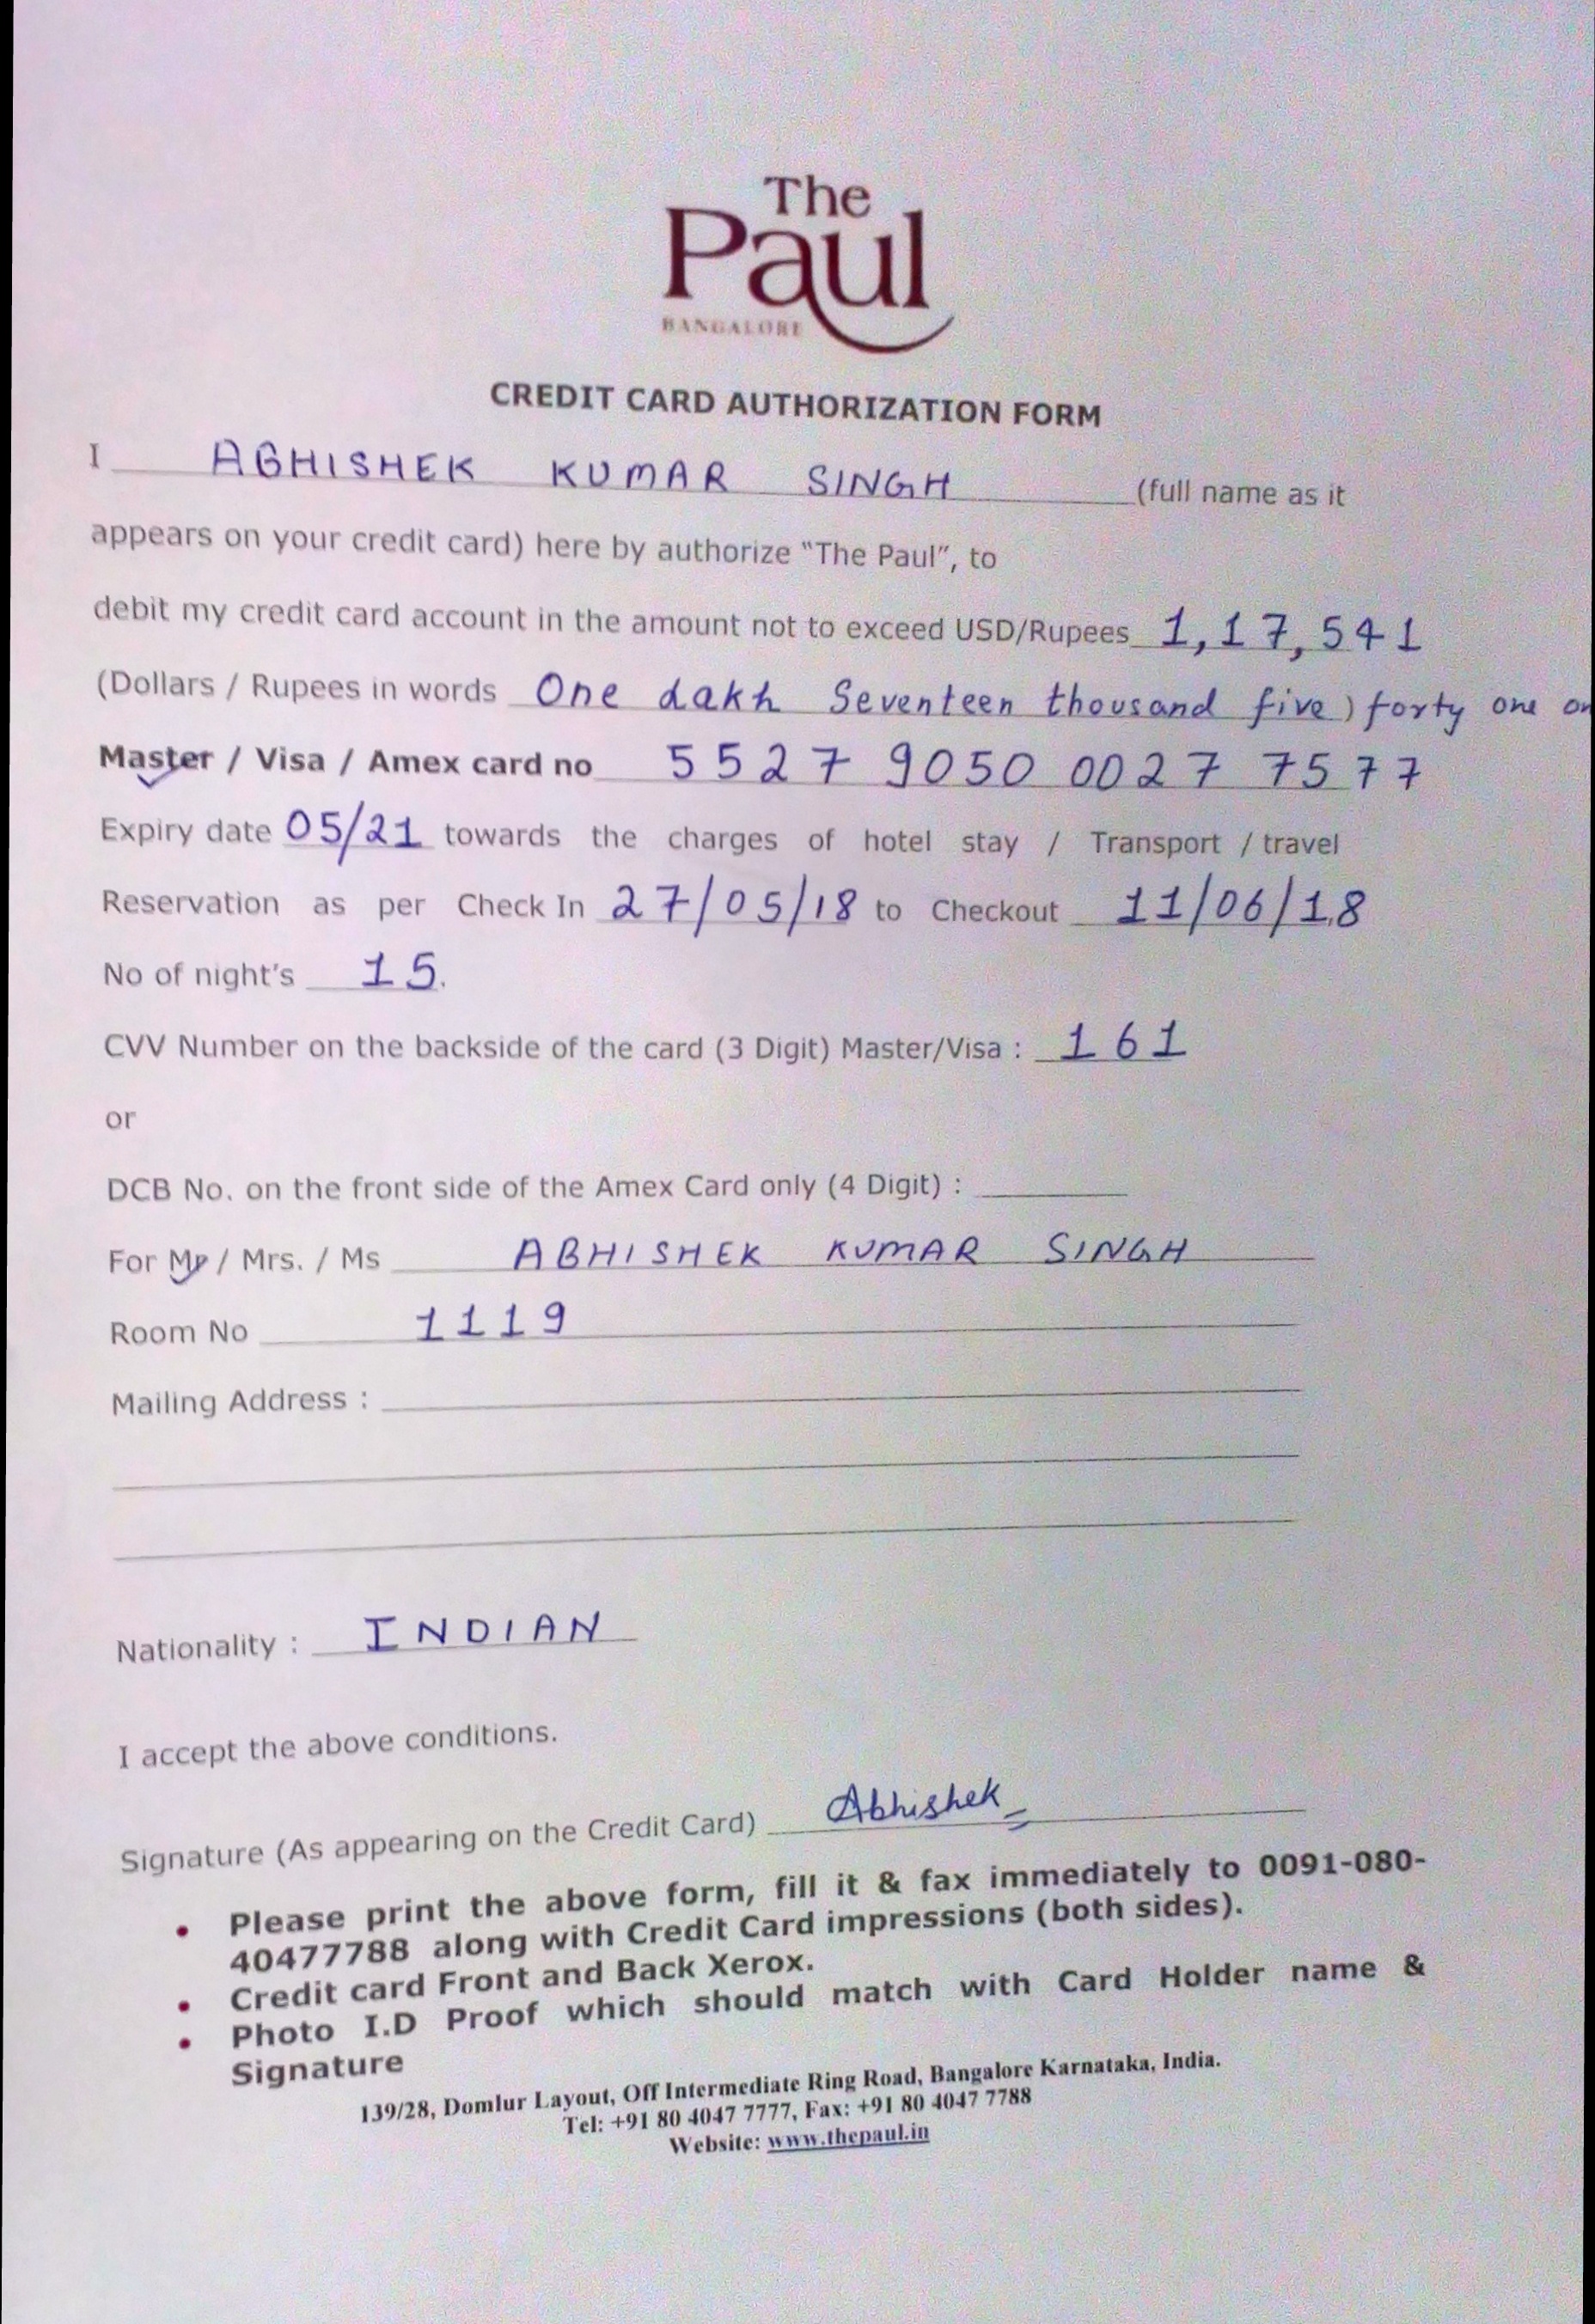 The
Paul
BANGALORE
CREDIT CARD AUTHORIZATION FORM
I ABHISHEK KUMAR SINGH (full name as it
appears on your credit card) here by authorize “The Paul”, to
debit my credit card account in the amount not to exceed USD/Rupees 1,17,541
(Dollars / Rupees in words One Lakh Seventeen thousand five ) forty one
Master / Visa / Amex card no 5527 9050 0027 7577
Expiry date 05/21 towards the charges of hotel stay / Transport / travel
Reservation as per Check In 27/05/18 to Checkout 11/06/18
No of night’s 15.
CVV Number on the backside of the card (3 Digit) Master/Visa : 161
or
DCB No. on the front side of the Amex Card only (4 Digit) :
For Mr / Mrs. / Ms ABHISHEK KUMAR SINGH
Room No 1119
Mailing Address :
Nationality : INDIAN
I accept the above conditions.
Signature (As appearing on the Credit Card) Abhishek
• Please print the above form, fill it & fax immediately to 0091-080-
40477788 along with Credit Card impressions (both sides).
• Credit card Front and Back Xerox.
• Photo I.D Proof which should match with Card Holder name &
Signature
139/28, Domlur Layout, Off Intermediate Ring Road, Bangalore Karnataka, India.
Tel: +91 80 4047 7777, Fax: +91 80 4047 7788
Website: www.thepaul.in